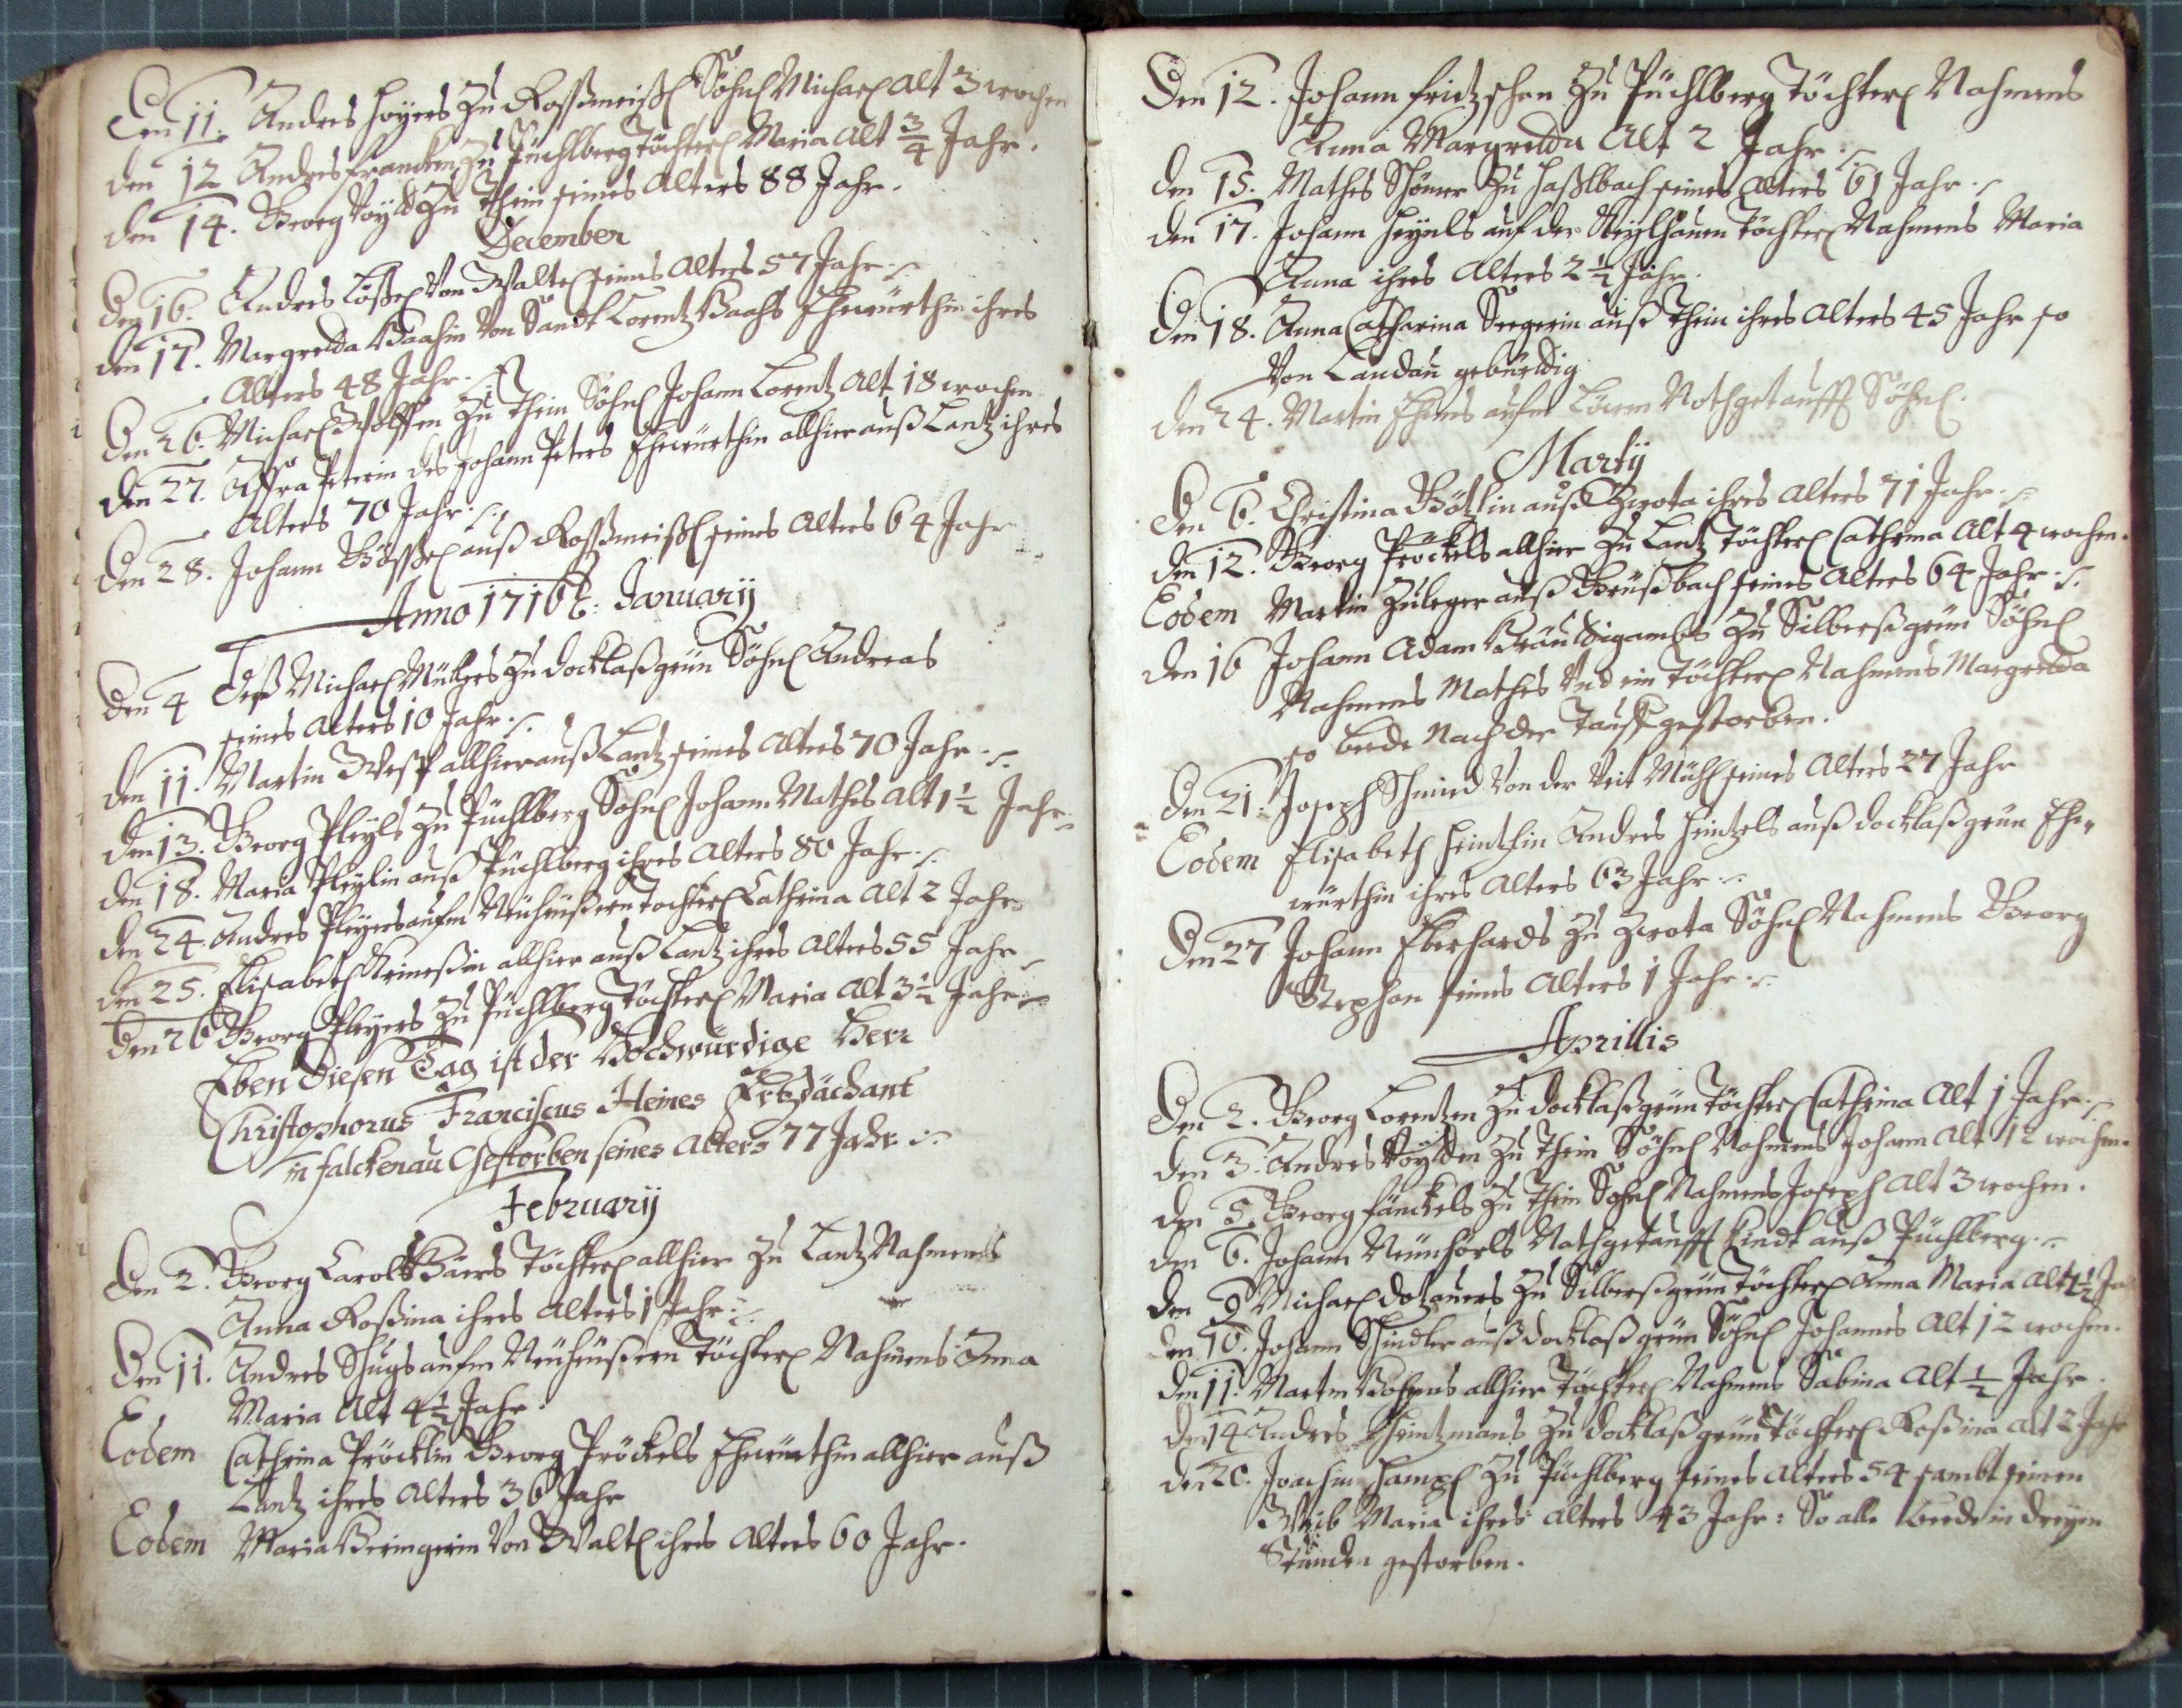 Den 11. Andres Hoyers Zu Roßmeißl Söhnl Michael Alt 3 wochen
den 12 Andres Francken Zu Püchlberg Töchterl Maria Alt 3/4 Jahr.
den 14. Georg Voyldt Zu Thein seines Alters 88 Jahr.
December
Den 16. Andres Lößel Von Waltl seines Alters 57 Jahr
den 17. Margretha Baahin Von Sandt Lorentz Baahs Ehewürthin ihres
Alters 48 Jahr.
Den 26. Michael Wolffen Zu Thein Söhnl Johann Lorentz Alt 18 wochen
den 27. Affra Peterin des Johann Peters Ehewürthin allhier auß Lantz ihres
Alters 70 Jahr.
Den 28. Johann Gößel auß Roßmeißl seines Alters 64 Jahr
Anno 1716 t: January
Den 4 Deß Michael Müllers Zu Docklaßgrün Söhnl Andreas
seines Alters 10 Jahr.
den 11. Martin Wespl allhier auß Lantz seines Alters 70 Jahr.
den 13. Georg Pleyls Zu Püchlberg Söhnl Johann Mathes Alt 1 1/2 Jahr
den 18. Maria Pleylin auß Püchlberg ihres Alters 80 Jahr.
den 24. Andres Pleyers aufm Neuheußern Tochterl Cathrina Alt 2 Jahr
den 25. Elisabeth Krineßin allhier auß Lantz ihres Alters 55 Jahr
den 26 Georg Pleyers Zu Püchlberg Töchterl Maria Alt 3 1/2 Jahr
Eben Diesen Tag ist der Hochwürdige Herr
Christophorus Franciscus Heines Ertzdächant
in Falckenau Gestorben seines Alters 77 Jahr
February
Den 2. Georg Carol Bäers Töchterl allhier Zu Lantz Nahmens
Anna Roßina ihres Alters 1 Jahr
Den 11. Andres Schugs aufm Neuheußern Töchterl Nahmens Anna
Maria Alt 4 1/2 Jahr.
Eodem Cathrina Pröcklin Georg Pröckels Ehewürthin allhier auß
Lantz ihres Alters 36 Jahr
Eodem Maria Beringerin Von Waltl ihres Alters 60 Jahr.
Den 12. Johann Fritzschen Zu Püchlberg Töchterl Nahmens
Anna Margretha Alt 2 Jahr
den 15. Mathes Schöner Zu Haßlbach seines Alters 61 Jahr
den 17. Johann Heynls auf der Steylhauen Töchterl Nahmens Maria
Anna ihres Alters 2 1/2 Jahr.
Den 18. Anna Catharina Seegerin auß Thein ihres Alters 45 Jahr so
Von Landau gebürdig
den 24. Martin Ehems aufm Löwen Nothgetaufft Söhnl.
Martij
Den 6. Christina Götzlin auß Zwota ihres Alters 71 Jahr
den 12. Georg Pröckels allhier Zu Lantz Töchterl Cathrina Alt 4 wochen.
Eodem Martin Zuleger auß Grüßbach seines Alters 64 Jahr
den 16 Johann Adam Bräutigambs Zu Silberßgrün Söhnl
Nahmens Mathes Und ein Töchterl Nahmens Margretha
so beede Nach der Tauff gestorben.
Den 21. Joseph Schmied Von der Veit Mühl seines Alters 27 Jahr
Eodem Elisabeth Heintzin Andres Heintzels auß Docklaßgrün Ehe„
würthin ihres Alters 63 Jahr
Den 27 Johann Eberhards Zu Zwota Söhnl Nahmens Georg
Stephan seines Alters 1 Jahr
Aprillis
Den 2. Georg Lorentzen Zu Docklaßgrün Töchterl Cathrina Alt 1 Jahr
den 3. Andres Voylden Zu Thein Söhnl Nahmens Johann Alt 12 wochen.
den 5. Georg Fänckels Zu Thein Söhnl Nahmens Joseph Alt 3 wochen.
den 6. Johann Neünhörls Nothgetaufft Kindt auß Püchlberg.
den 9 Michael Dotzauers Zu Silberßgrün Töchterl Anna Maria Alt 1 1/2 Ja
den 10. Johann Schindler auß Docklaßgrün Söhnl Johannes Alt 12 wochen.
den 11. Martin Bohems allhier Töchterl Nahmens Sabina Alt 1/2 Jahr.
den 14 Andres Heintzmans Zu Docklaßgrün Töchterl Roßina Alt 2 Jahr
den 20. Joachim Hampl Zu Püchlberg seines Alters 54 sambt seinen
Weib Maria ihres Alters 43 Jahr: So alle beede in dreyen
Stunden gestorben.